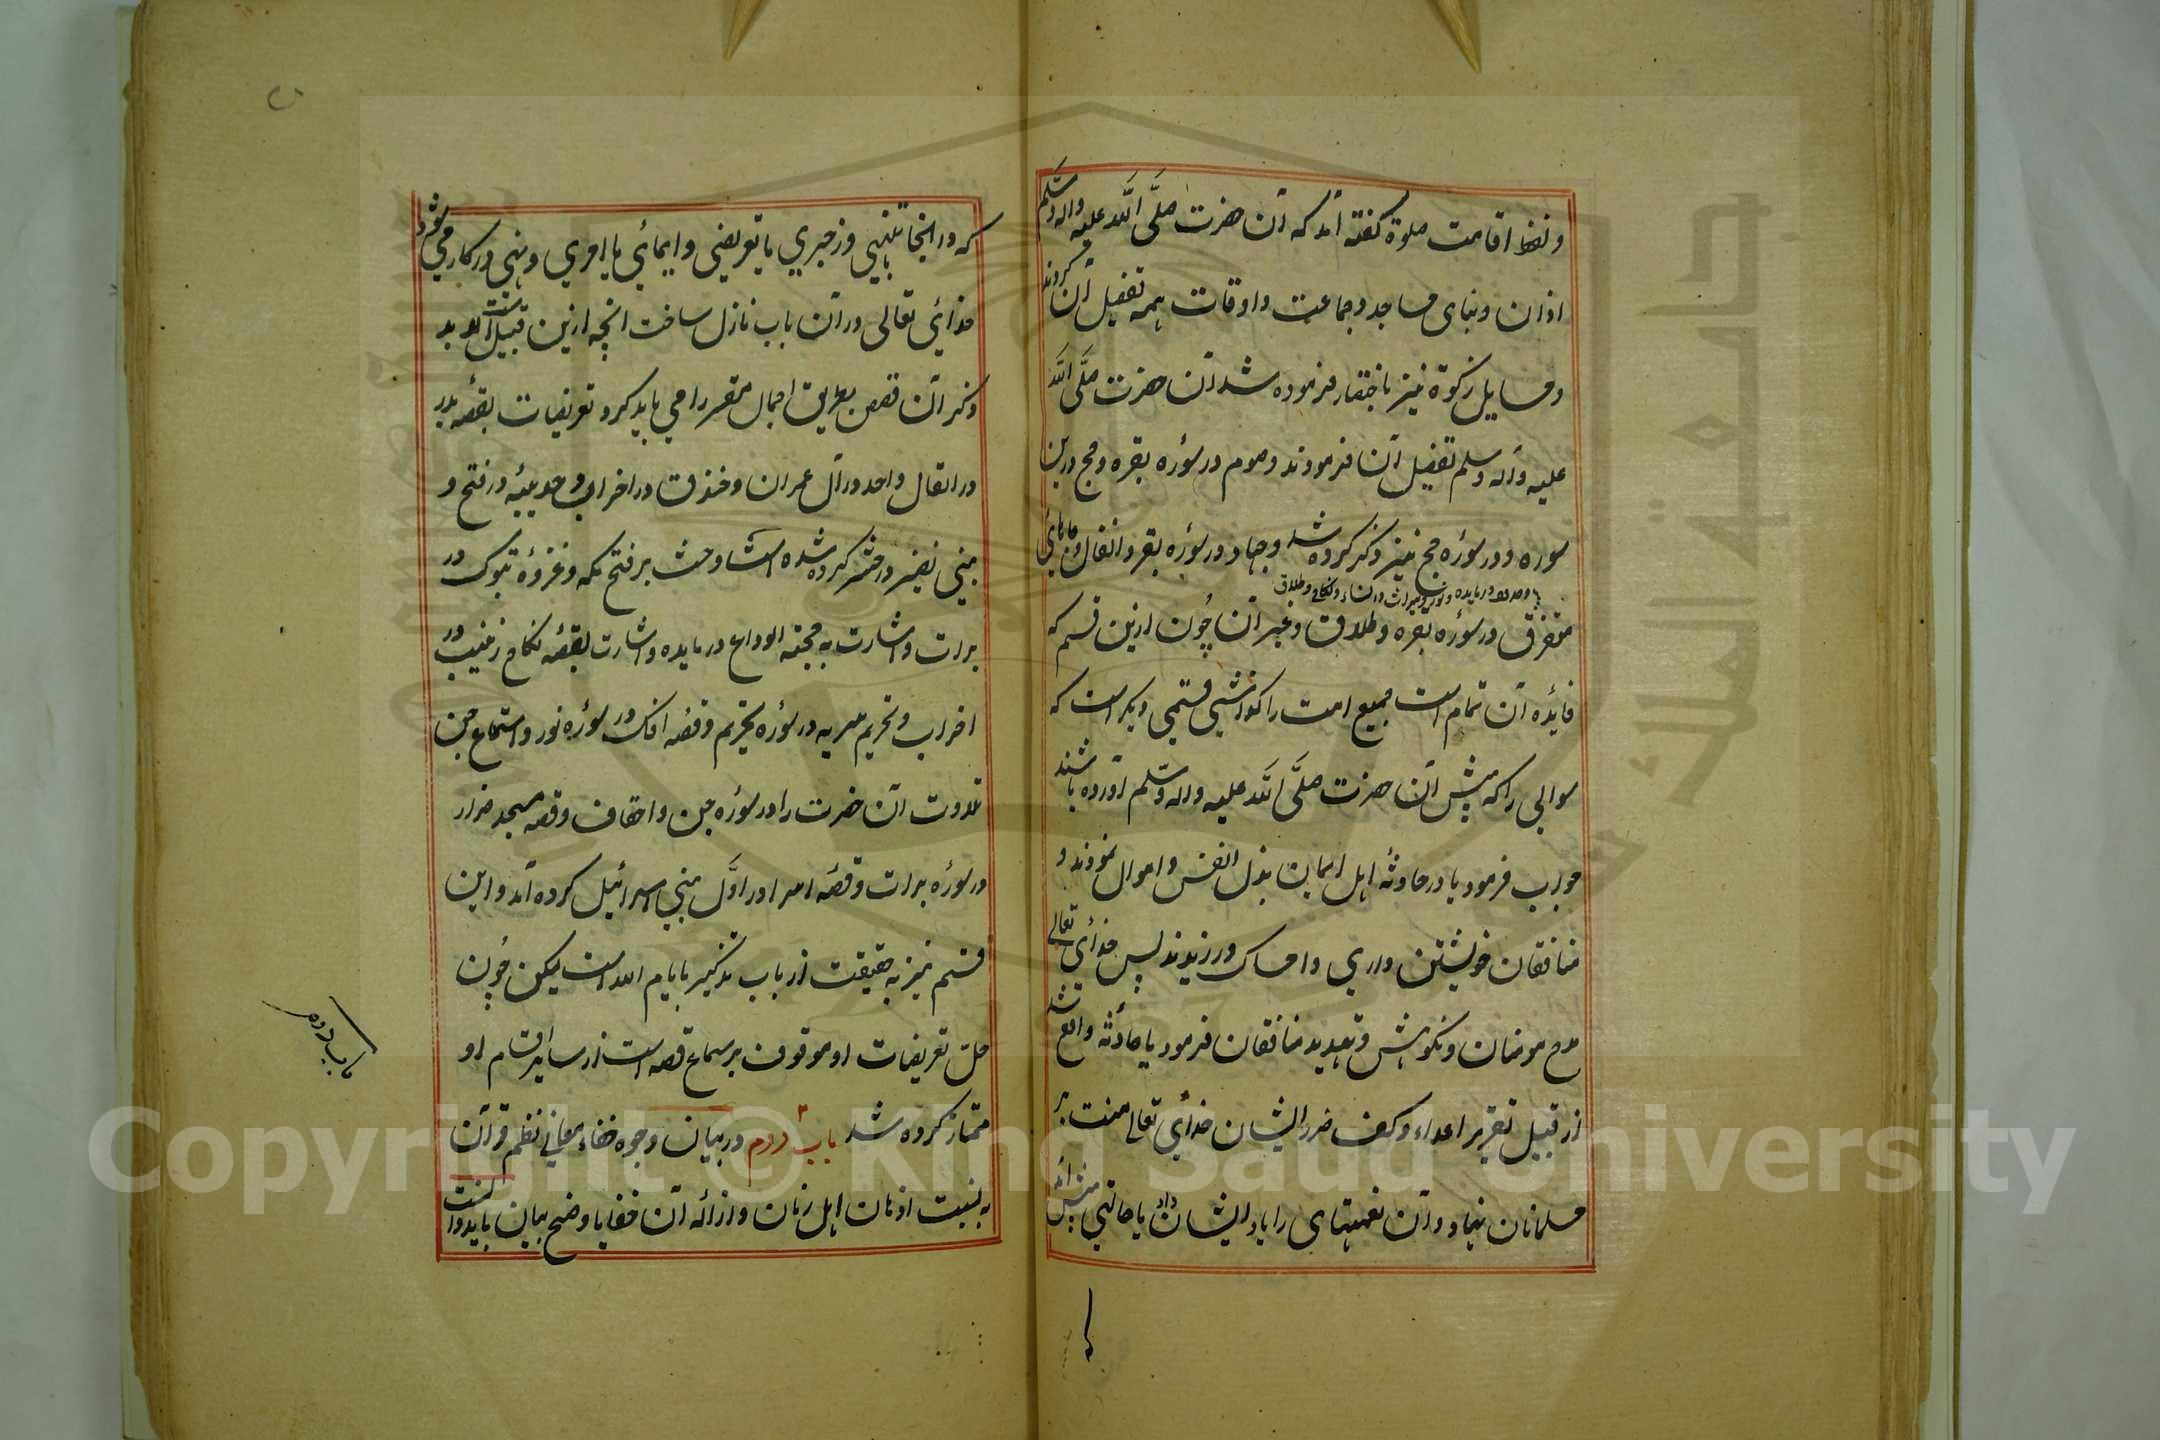 و لفظ اقامت صلوة گفته آمد که آن حضرت صلّی اللّه علیه واله وسلّم
اذان و بنای مساجد و جماعت و اوقات همه تفصیل آن کردند
و مسایل زکوة نیز باختصار فرموده شد آن حضرت صلّی اللّه
علیه وآله وسلم تفصیل آن فرمودند و صوم در سوره بقره و حج در این
سوره و در سوره حج نیز ذکر کرده شد و جهاد در سوره بقر و انفال و جاهائی
و حدود در مایده و نور و میراث در نساء و نکاح و طلاق
متفرق در سوره بقره و طلاق و غیر آن چون ازین قسم که
فائده آن تمام است جمیع امت را گذشتی قسمی دیگر است که
سوالی را که پیش آن حضرت صلّی اللّه علیه واله وسلّم آورده باشند
جواب فرمود یا در حادثه اهل ایمان بذل انفس و اموال نمودند و
منافقان خویشتن داری و امساک ورزیدند پس خدائی تعالی
مدح مومنان و نکوهش و تهدید منافقان فرمود یا حادثه واقع شد
از قبیل تقریر اعداء و کف ضرر ایشان خدائی تعالی منت بر
مسلمانان نهاد و آن نعمتهای را یاد ایشان داد یا حالتی پیش آمد
که
که در انجا تنبیهی و زجری یا تعریضی و ایمائی یا امری و نهی در کار می شود
خدائی تعالی در آن باب نازل ساخت انچه ازین قبیل است لا بد
ذکر آن قصص بطریق اجمال مفسر را می باید کرد و تعریضات بقصه بدر
در انفال و احد در آل عمران و خندق در احزاب و حدیبیه در فتح و
بنی نضیر در حشر کرده شده است و حث بر فتح مکه و غزوه تبوک در
برات و اشارت به حجته الوداع در مایده و اشارت بقصه نکاح زینب در
احزاب و تحریم سریه در سوره تحریم و قصه افک در سوره نور و استماع جن
تلاوت آن حضرت را در سوره جن و احقاف و قصه مسجد ضرار
در سوره برات و قصه اسرا در اوّل بنی اسرائیل کرده آمد و این
قسم نیز به حقیقت از باب تذکیر بایام الله است لیکن چون
حل تعریضات او موقوف بر سماع قصه است از سایر اقسام او
ممتاز کرده شد باب دوم در بیان وجوه خفاء معانی نظم قرآن
به نسبت اذهان اهل زمان و ازاله آن خفا باوضح بیان باید دانست
باب دوم
Copyright © King Saud University